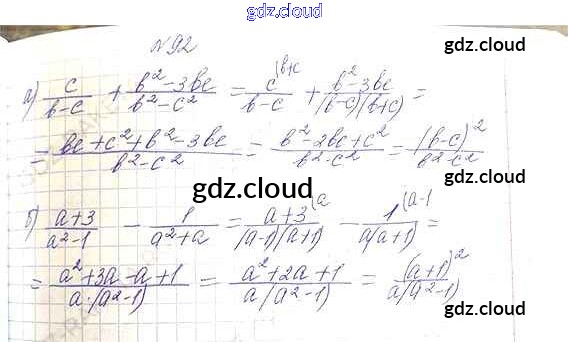 gdz.cloud
№92
gdz.cloud
а) c/(b-c) + (b²-3bc)/(b²-c²) = c^(b+c/(b-c) + (b²-3bc)/((b-c)(b+c)) =
= (bc+c²+b²-3bc)/(b²-c²) = (b²-2bc+c²)/(b²-c²) = (b-c)²/(b²-c²)
gdz.cloud
gdz.cloud
б) (a+3)/(a²-1) - 1/(a²+a) = (a+3)^(a/((a-1)(a+1)) - 1^(a-1/(a(a+1)) =
= (a²+3a-a+1)/(a·(a²-1)) = (a²+2a+1)/(a(a²-1)) = (a+1)²/(a(a²-1))
gdz.cloud